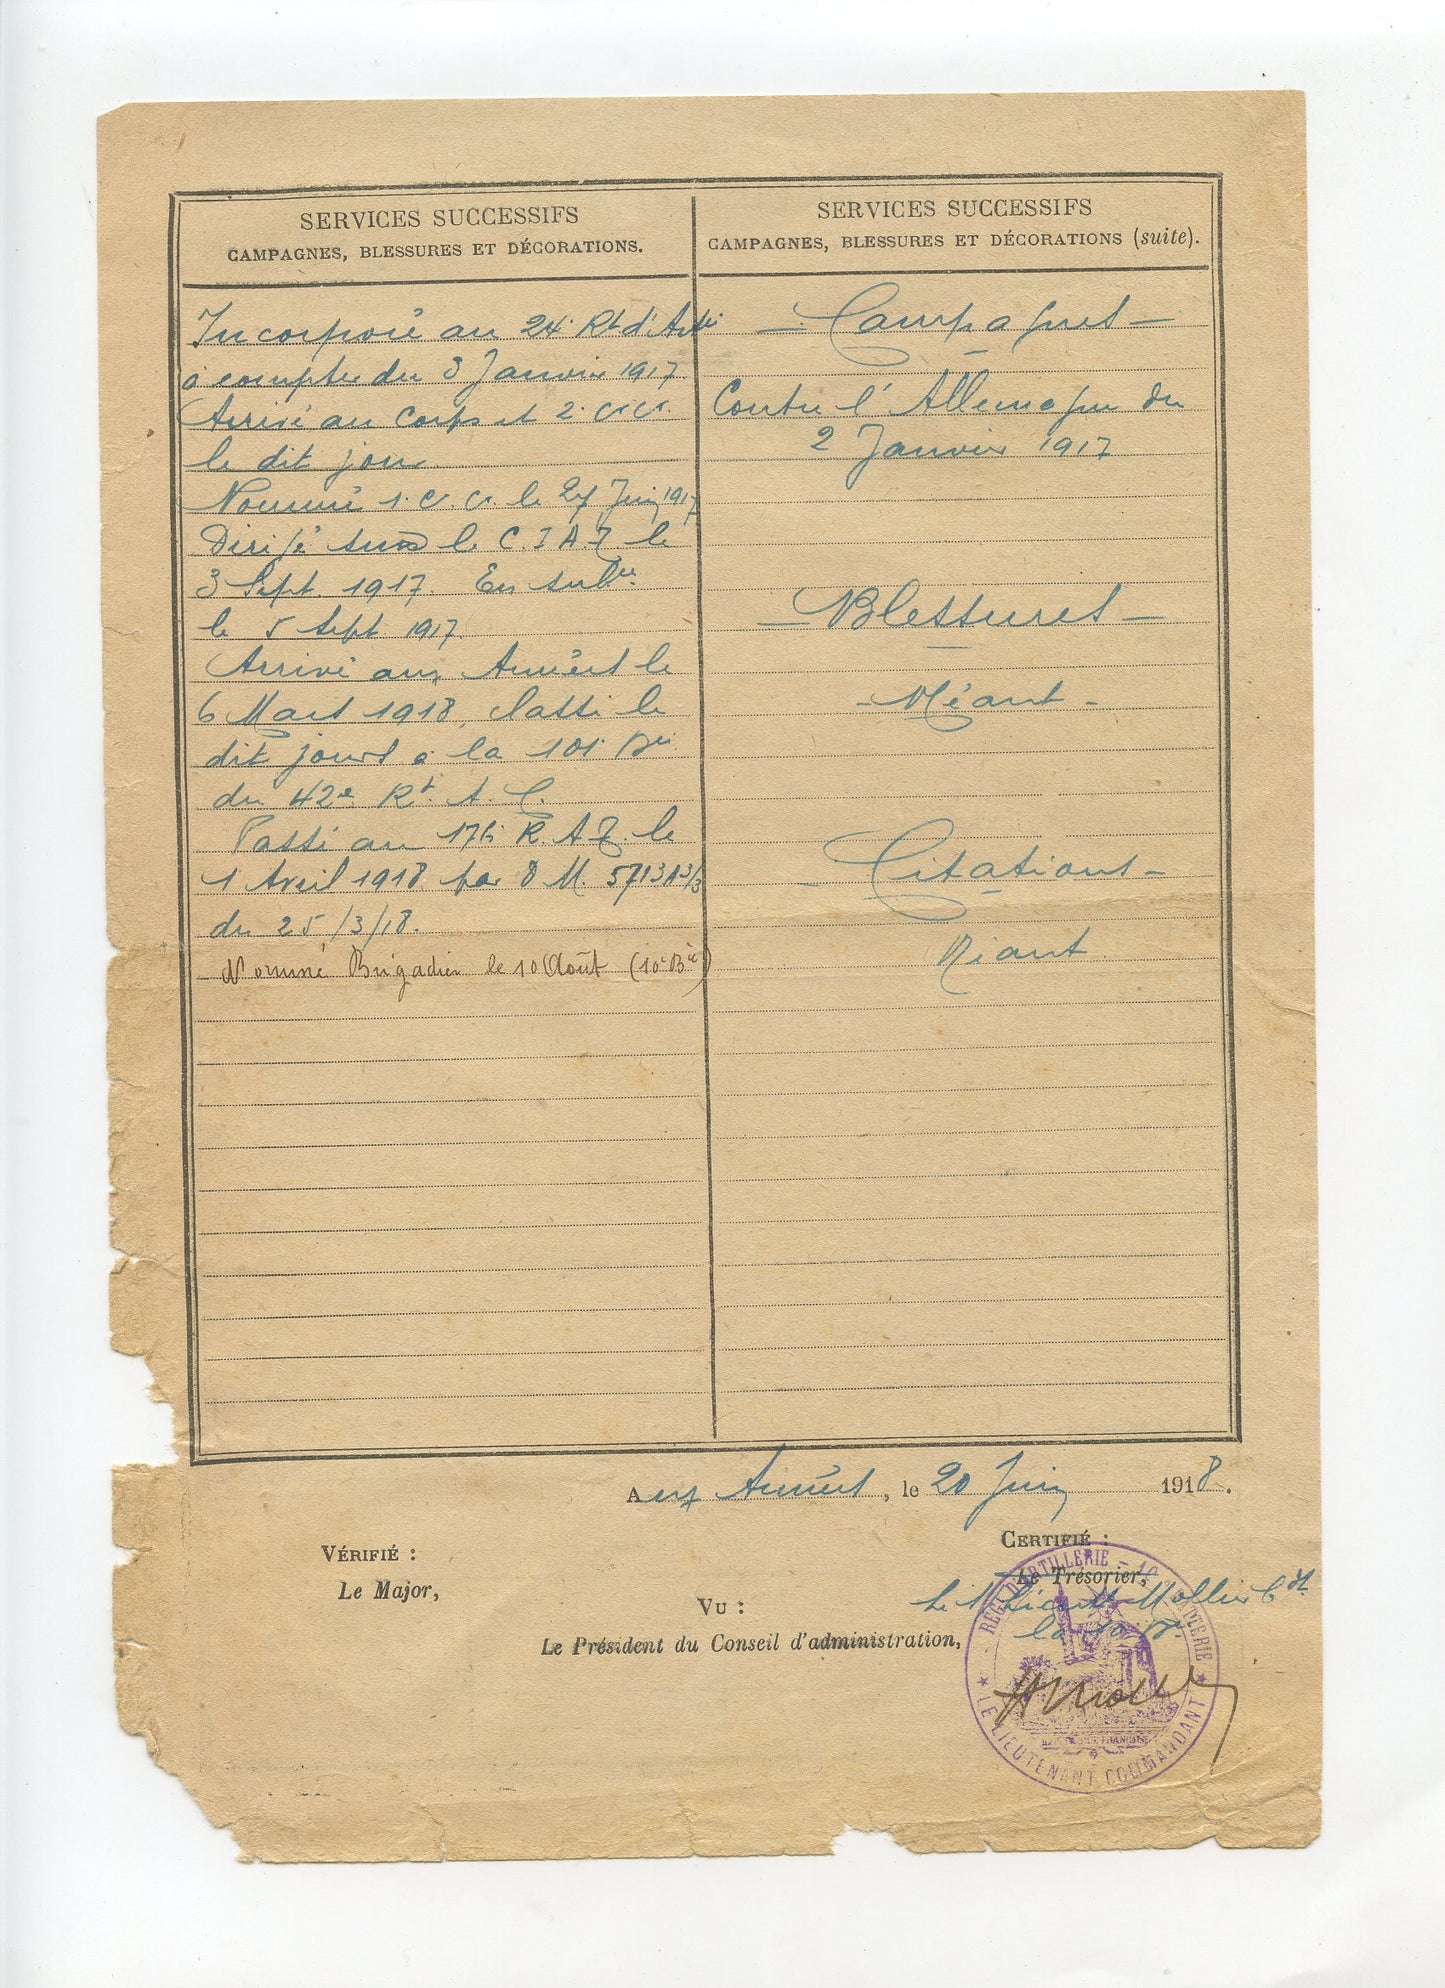 SERVICES SUCCESSIFS
CAMPAGNES, BLESSURES ET DÉCORATIONS.
Incorporé au 24e Rt d'Artie
à compter du 3 Janvier 1917.
Arrivé au Corps et 2e c. c.
le dit jour.
Nommé 1e c. c. le 27 Juin 1917
Dirigé sur le C.I.A.T. le
3 Sept. 1917. En subce
le 5 Sept 1917.
Arrivé aux Armées le
6 Mars 1918, classé le
dit jour à la 101e Bie
du 42e Rt. A. C.
Passé au 176 R. A. T. le
1 Avril 1918 par D M. 5713 A 3/3
du 25/3/18.
Nommé Brigadier le 10 Août (10e Bie)
SERVICES SUCCESSIFS
CAMPAGNES, BLESSURES ET DÉCORATIONS (suite).
- Campagnes -
Contre l'Allemagne du
2 Janvier 1917
- Blessures -
- Néant -
- Citations -
Néant.
Aux Armées, le 20 Juin 1918.
VÉRIFIÉ :
Le Major,
VU :
Le Président du Conseil d'administration,
CERTIFIÉ :
Le Trésorier,
Le Lieutt Mollier Cdt
la 10e Bie
REGt D'ARTILLERIE - 10e BATTERIE
REPUBLIQUE FRANÇAISE
★ LE LIEUTENANT COMMANDANT ★